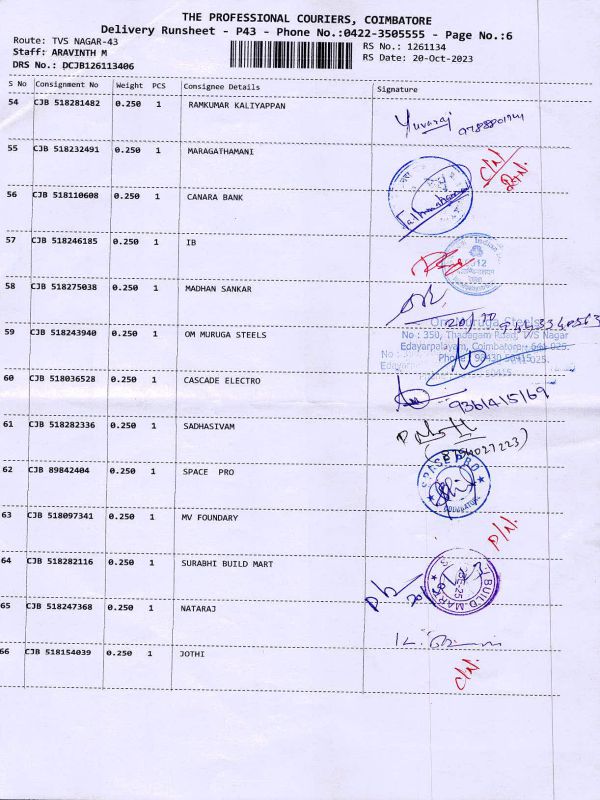 THE PROFESSIONAL COURIERS, COIMBATORE
Delivery Runsheet - P43 - Phone No.:0422-3505555 - Page No.:6
Route: TVS NAGAR-43
RS No.: 1261134
Staff: ARAVINTH M
RS Date: 20-Oct-2023
DRS No.: DCJB126113406
S No Consignment No Weight PCS Consignee Details Signature
54 CJB 518281482 0.250 1 RAMKUMAR KALIYAPPAN
Yuvaraj
55 CJB 518232491 0.250 1 MARAGATHAMANI
C/N
56 CJB 518110608 0.250 1 CANARA BANK
57 CJB 518246185 0.250 1 IB
58 CJB 518275038 0.250 1 MADHAN SANKAR
59 CJB 518243940 0.250 1 OM MURUGA STEELS
No : 350, Thadagam Road, TVS Nagar
Edayarpalayam, Coimbatore - 641 025.
Phone : 92430 50415
60 CJB 518036528 0.250 1 CASCADE ELECTRO
9361415169
61 CJB 518282336 0.250 1 SADHASIVAM
62 CJB 89842404 0.250 1 SPACE PRO
63 CJB 518097341 0.250 1 MV FOUNDARY
P/N.
64 CJB 518282116 0.250 1 SURABHI BUILD MART
BUILD MART
65 CJB 518247368 0.250 1 NATARAJ
66 CJB 518154039 0.250 1 JOTHI
C/N.